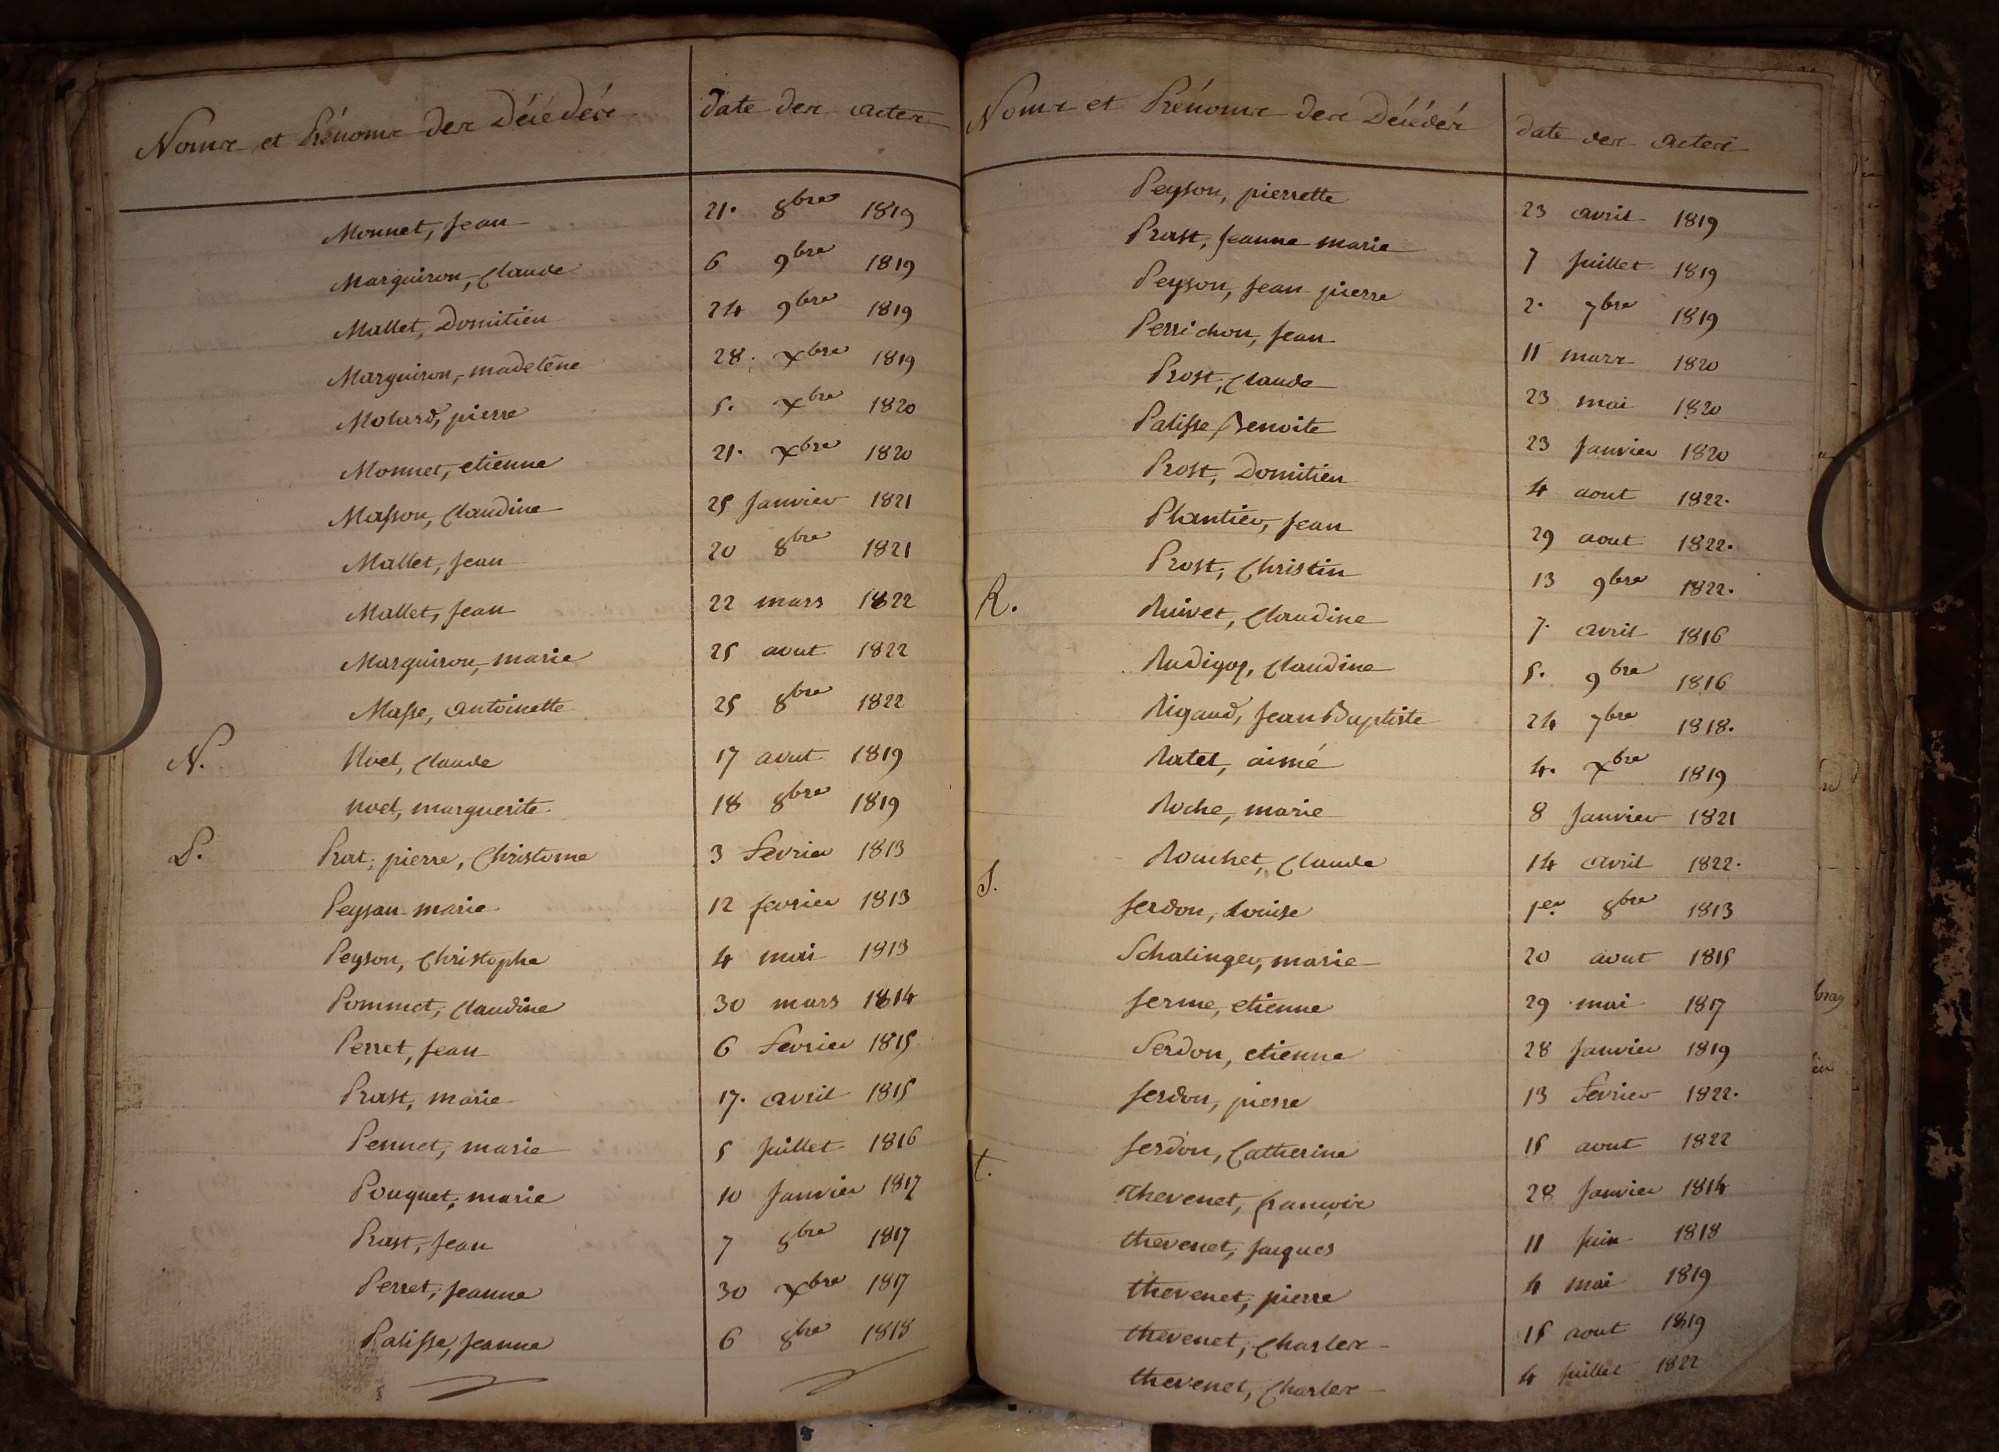 Noms et Prénoms des Décédés date des actes
Monnet, Jean 21. 8bre 1819
Marguiron, Claude 6 9bre 1819
Mallet, Domitien 24 9bre 1819
Marguiron, madelène 28. xbre 1819
Molard, pierre 5. xbre 1820
Monnet, etienne 21. xbre 1820
Masson, Claudine 25 Janvier 1821
Mallet, Jean 20 8bre 1821
Mallet, Jean 22 mars 1822
Marguiron, marie 25 aout 1822
Masse, antoinette 25 8bre 1822
N. Noel, Claude 17 aout 1819
noel, marguerite 18 8bre 1819
P. Prat, pierre, Christome 3 Fevrier 1813
Peyson marie 12 fevrier 1813
Peyson, Christophe 4 mai 1813
Pommet, Claudine 30 mars 1814
Perret, Jean 6 Fevrier 1815
Prast, marie 17. avril 1815
Pennet, marie 5 Juillet 1816
Pouquet, marie 10 Janvier 1817
Prast, Jean 7 8bre 1817
Perret, Jeanne 30 xbre 1817
Palisse, Jeanne 6 8bre 1818
Noms et Prénoms des Décédés date des actes
Peyson, pierrette 23 avril 1819
Prast, Jeanne marie 7 Juillet 1819
Peyson, Jean pierre 2. 7bre 1819
Perrichon, Jean 11 mars 1820
Prost, Claude 23 mai 1820
Palisse Benoite 23 Janvier 1820
Prost, Domitien 4 aout 1822.
Plantier, Jean 29 aout 1822.
Prost, Christin 13 9bre 1822.
R. Ruivet, Claudine 7. avril 1816
Rudigoz, Claudine 5. 9bre 1816
Rigaud, Jean Baptiste 24 7bre 1818.
Ratet, aimé 4. xbre 1819
Roche, marie 8 Janvier 1821
Rouchet, Claude 14 avril 1822.
S. Serdon, Louise 1er 8bre 1813
Schalinger, marie 20 aout 1815
Serme, etienne 29 mai 1817
Serdon, etienne 28 Janvier 1819
Serdon, pierre 13 Fevrier 1822.
Serdon, Catherine 15 aout 1822
t. Thevenet, françois 28 Janvier 1814
thevenet, Jacques 11 Juin 1818
thevenet, pierre 4 mai 1819
thevenet, Charles 15 aout 1819
thevenet, Charles 4 Juillet 1822